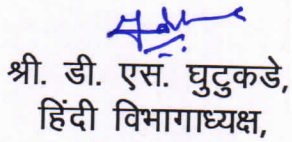 श्री. डी. एस. घुटुकडे,
हिंदी विभागाध्यक्ष,